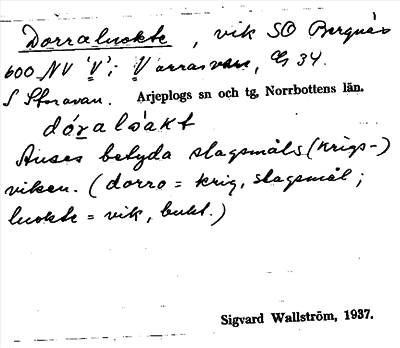 Dorraluokte, vik SO Bergnäs
600 NV "V"; Varrasven, G 34.
S Storavan. Arjeplogs sn och tg, Norrbottens län.
dóralŏ́akt
Anses betyda slagsmåls(krigs-)
viken. (dorro = krig, slagsmål;
luokte = vik, bukt.)
Sigvard Wallström, 1937.